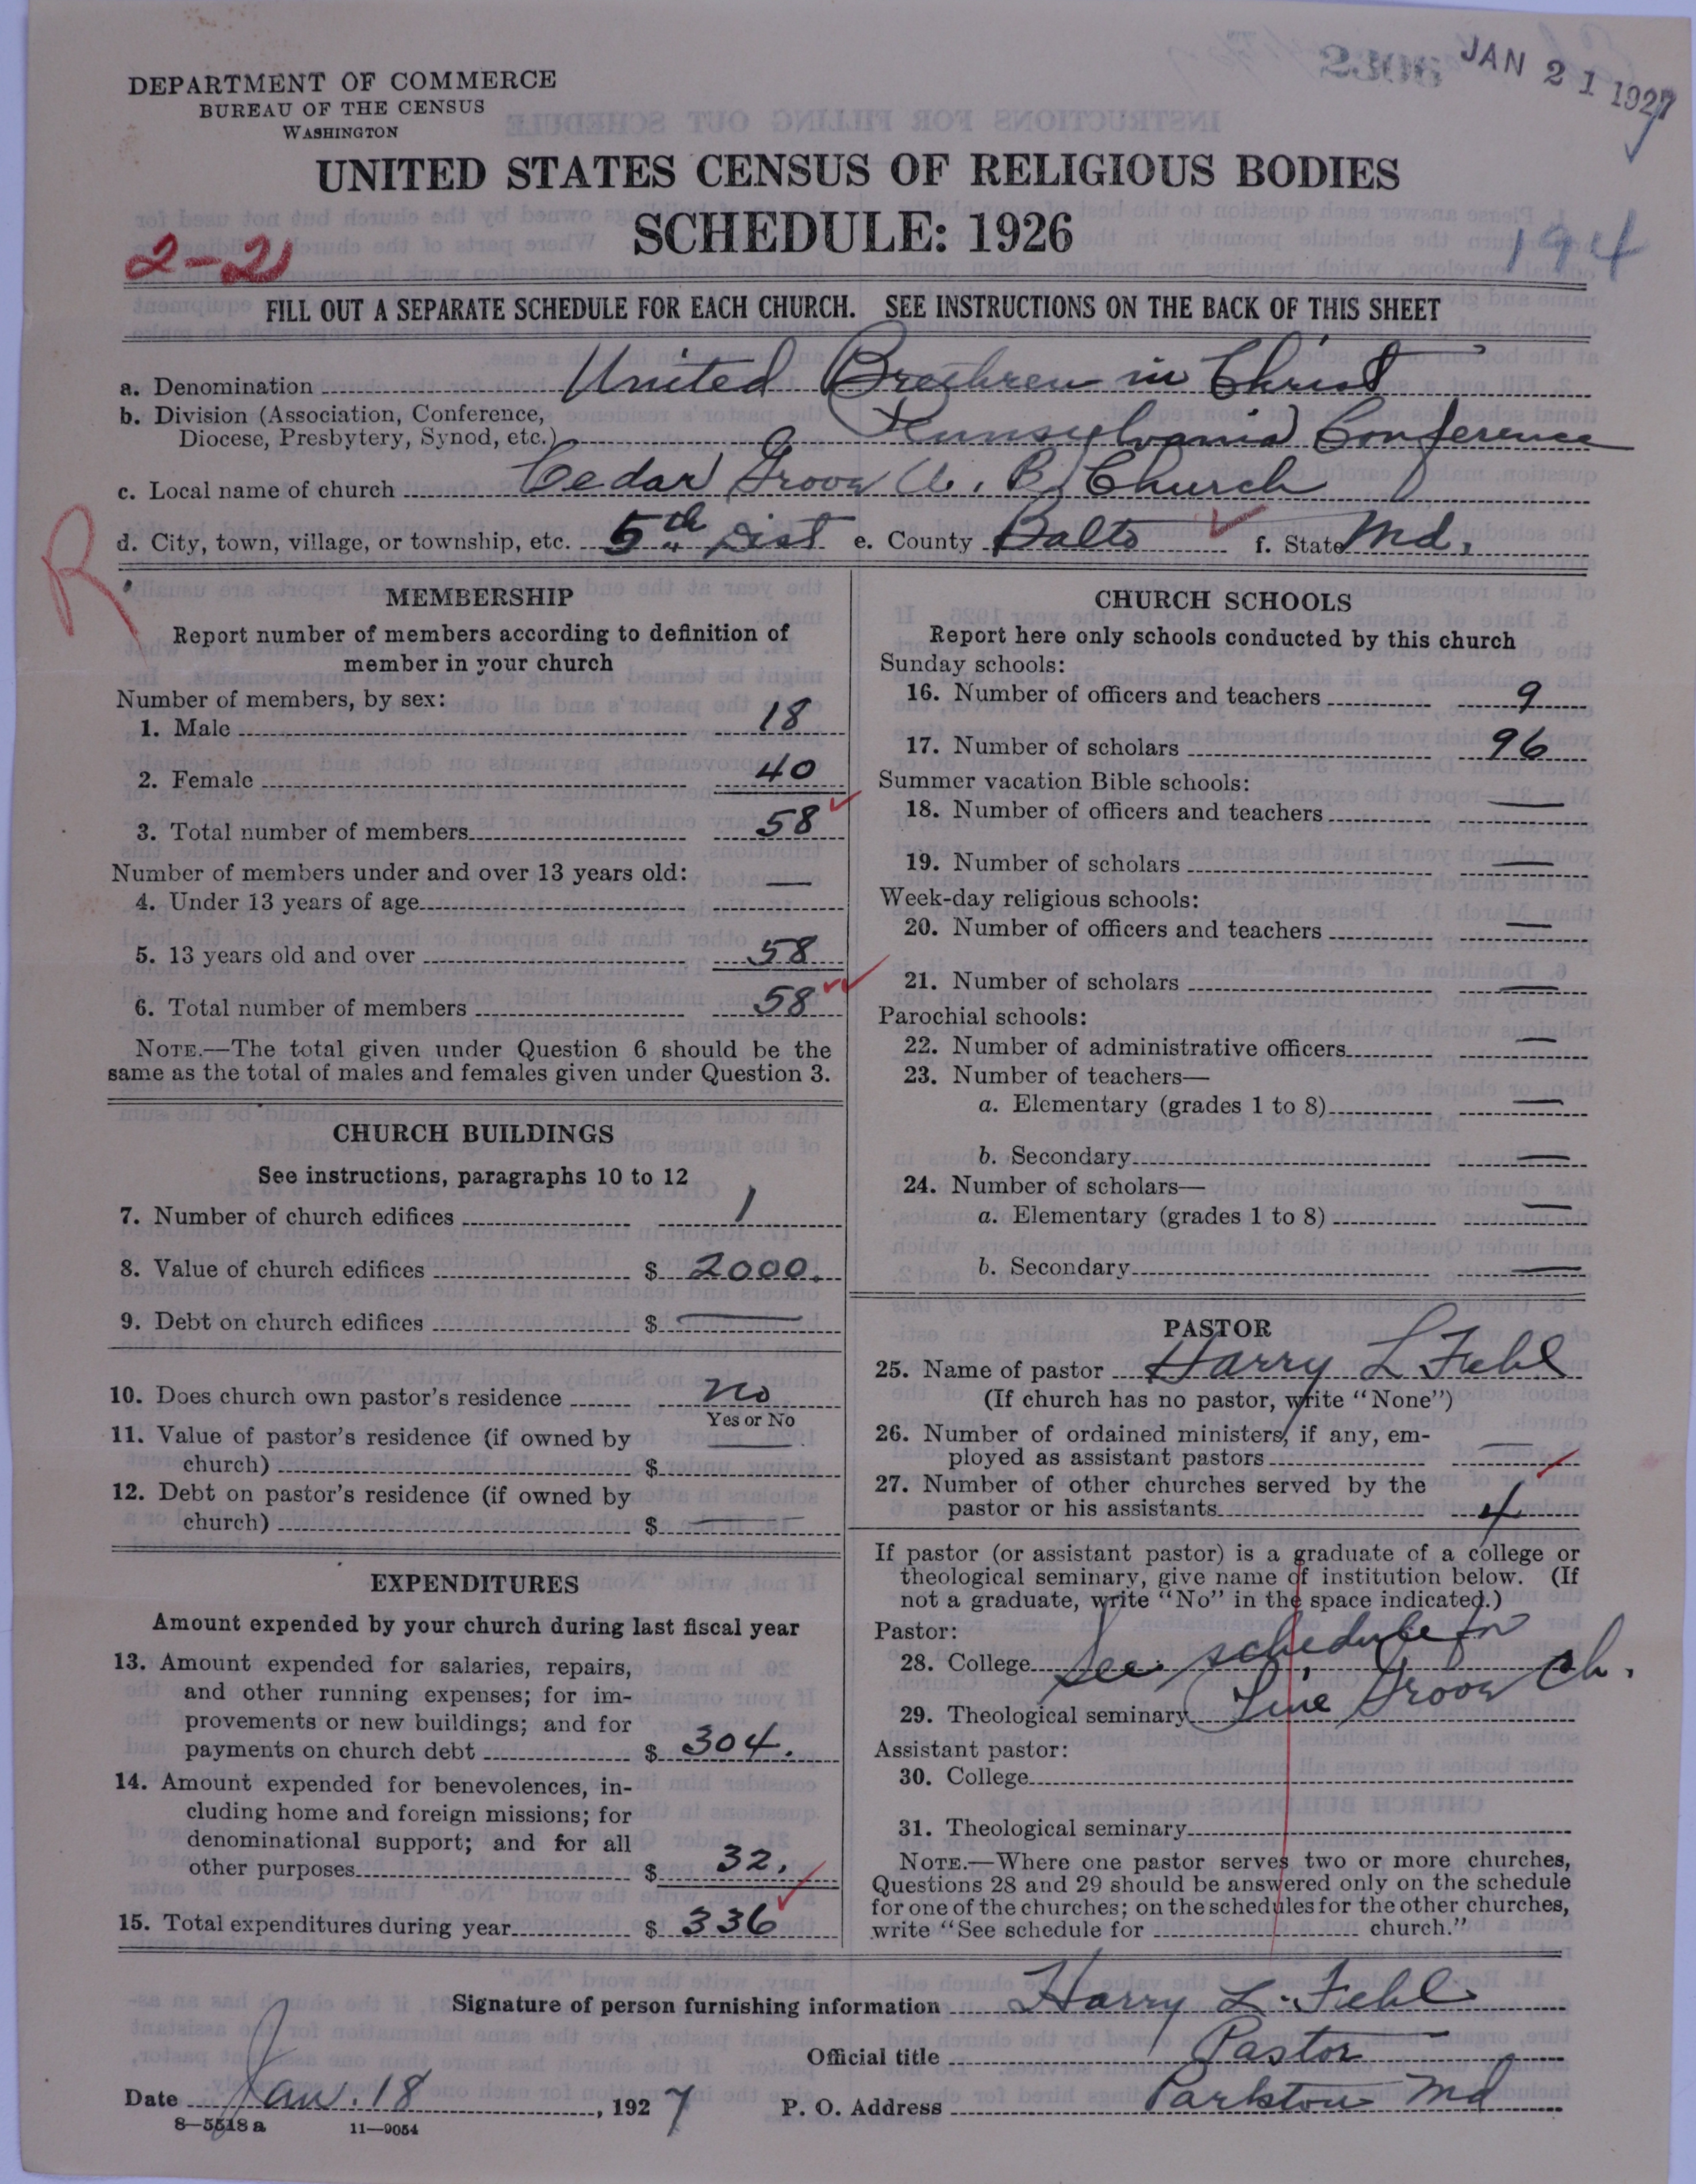 JAN 21 1927
DEPARTMENT OF COMMERCE
BUREAU OF THE CENSUS
WASHINGTON
UNITED STATES CENSUS OF RELIGIOUS BODIES
SCHEDULE: 1926
2-21
194
FILL OUT A SEPARATE SCHEDULE FOR EACH CHURCH. SEE INSTRUCTIONS ON THE BACK OF THIS SHEET
a. Denomination United Brethren in Christ
b. Division (Association, Conference,
Diocese, Presbytery, Synod, etc.) Pennsylvania Conference
c. Local name of church Cedar Grove U. B. Church
d. City, town, village, or township, etc. 5th Dist e. County Balto f. State Md.
R
MEMBERSHIP
Report number of members according to definition of
member in your church
Number of members, by sex:
1. Male 18
2. Female 40
3. Total number of members 58
Number of members under and over 13 years old:
4. Under 13 years of age —
5. 13 years old and over 58
6. Total number of members 58
NOTE.—The total given under Question 6 should be the
same as the total of males and females given under Question 3.
CHURCH BUILDINGS
See instructions, paragraphs 10 to 12
7. Number of church edifices 1
8. Value of church edifices $ 2000.
9. Debt on church edifices $ —
10. Does church own pastor's residence no
Yes or No
11. Value of pastor's residence (if owned by
church) $ —
12. Debt on pastor's residence (if owned by
church) $ —
EXPENDITURES
Amount expended by your church during last fiscal year
13. Amount expended for salaries, repairs,
and other running expenses; for im-
provements or new buildings; and for
payments on church debt $ 304.
14. Amount expended for benevolences, in-
cluding home and foreign missions; for
denominational support; and for all
other purposes $ 32.
15. Total expenditures during year $ 336
CHURCH SCHOOLS
Report here only schools conducted by this church
Sunday schools:
16. Number of officers and teachers 9
17. Number of scholars 96
Summer vacation Bible schools:
18. Number of officers and teachers —
19. Number of scholars —
Week-day religious schools:
20. Number of officers and teachers —
21. Number of scholars —
Parochial schools:
22. Number of administrative officers —
23. Number of teachers—
a. Elementary (grades 1 to 8) —
b. Secondary —
24. Number of scholars—
a. Elementary (grades 1 to 8) —
b. Secondary —
PASTOR
25. Name of pastor Harry L Fehl
(If church has no pastor, write "None")
26. Number of ordained ministers, if any, em-
ployed as assistant pastors —
27. Number of other churches served by the
pastor or his assistants 4
If pastor (or assistant pastor) is a graduate of a college or
theological seminary, give name of institution below. (If
not a graduate, write "No" in the space indicated.)
Pastor:
28. College See schedule for
29. Theological seminary Pine Grove Ch.
Assistant pastor:
30. College
31. Theological seminary
NOTE.—Where one pastor serves two or more churches,
Questions 28 and 29 should be answered only on the schedule
for one of the churches; on the schedules for the other churches,
write "See schedule for church."
Signature of person furnishing information Harry L. Fehl
Official title Pastor
Date Jan. 18, 1927 P. O. Address Parkton Md
8—5518 a 11—9054